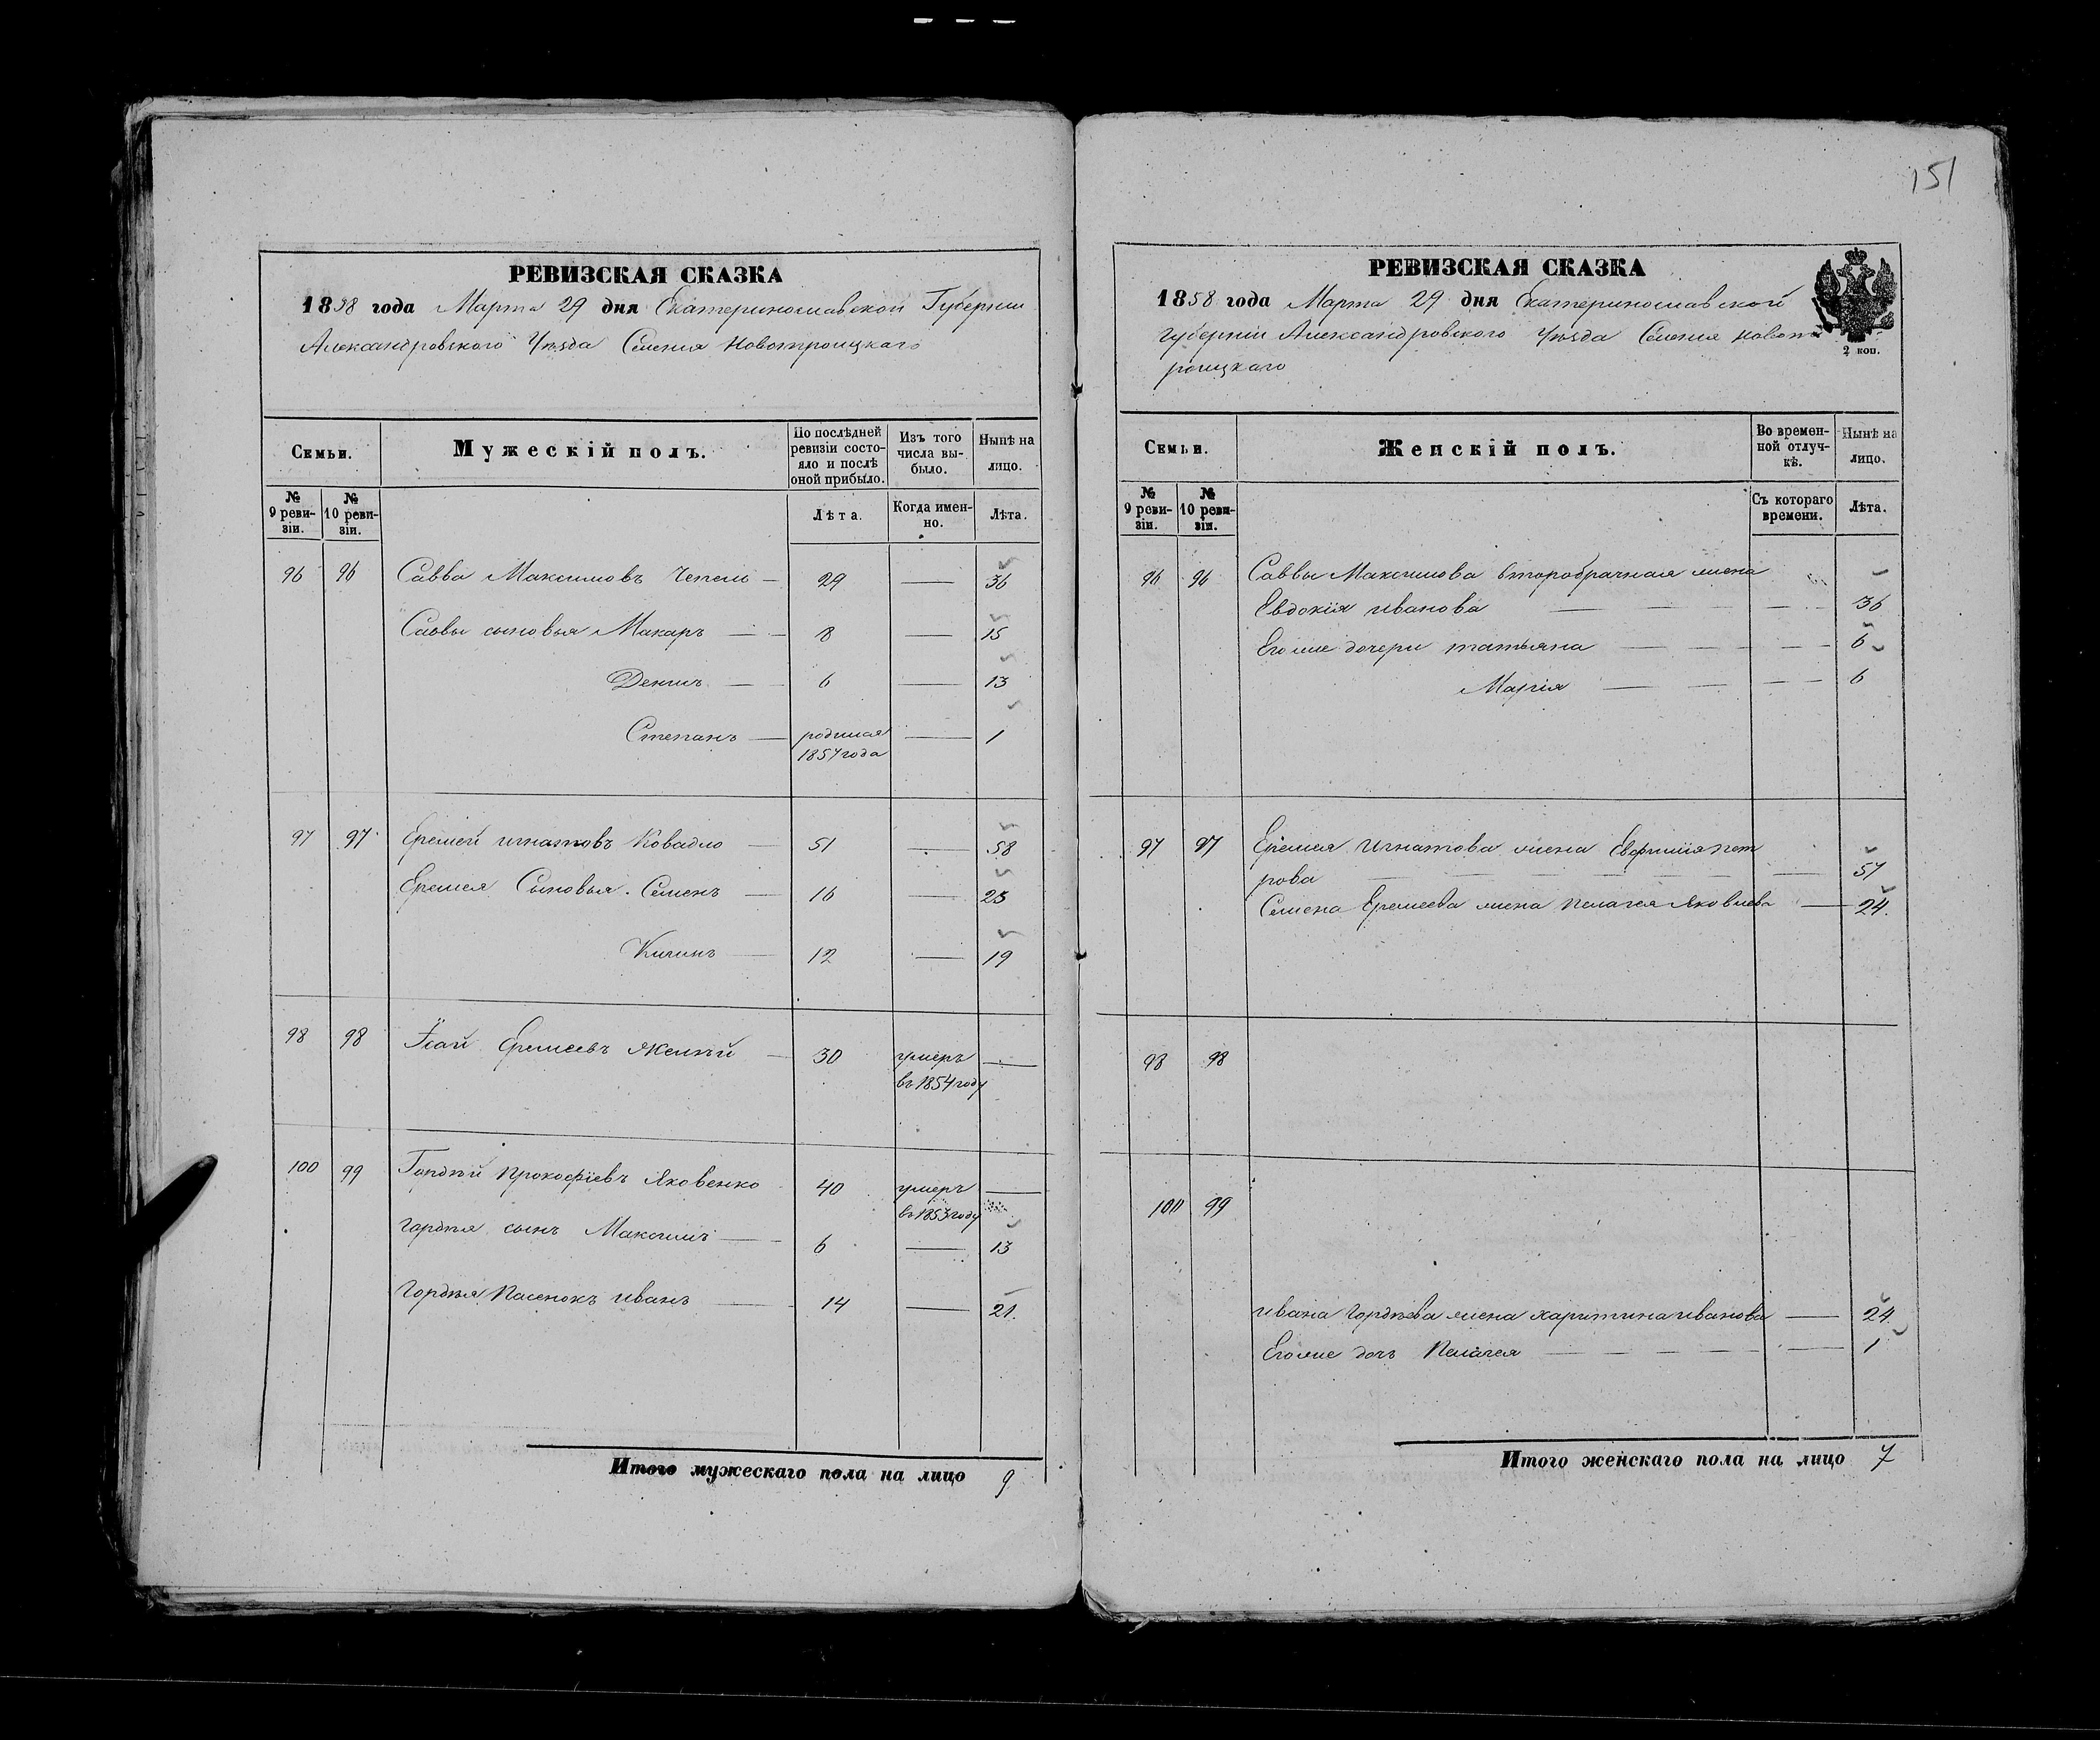 151
РЕВИЗСКАЯ СКАЗКА
1858 года Марта 29 дня Екатеринославской Губернии
Александровского Уѣзда Селения Новотроицкаго
Семьи.
Мужескій полъ.
По послѣдней ревизіи состояло и послѣ оной прибыло.
Изъ того числа выбыло.
Нынѣ на лицо.
№ 9 ревизіи.
№ 10 ревизіи.
Лѣта.
Когда именно.
Лѣта.
96 96 Савва Максимовъ — 29 — 36
Саввы сыновья Макаръ — 8 — 15
Денисъ — 6 — 13
Степанъ — родился 1857 года — 1
97 97 Еремей Игнатовъ Ковадло — 51 — 58
Еремея Сыновья Семенъ — 16 — 23
— 12 — 19
98 98 Еремеевъ — 30 умеръ въ 1854 году —
100 99 Гордѣй Прокофіевъ Яковенко 40 умеръ въ 1853 году —
Гордѣя сынъ Максимъ — 6 — 13
Гордѣя Пасенокъ Иванъ — 14 — 21.
Итого мужескаго пола на лицо 9
РЕВИЗСКАЯ СКАЗКА
1858 года Марта 29 дня Екатеринославской
Губерніи Александровского Уѣзда Селения Новот
роицкаго
2 коп.
Семьи.
Женскій полъ.
Во временной отлучкѣ.
Нынѣ на лицо.
№ 9 ревизіи.
№ 10 ревизіи.
Съ котораго времени.
Лѣта.
96 96 Саввы Максимова второбрачная жена
Евдокія Иванова — — — 36
Его же дочери Татьяна — — — 6
Марія — — — 6
97 97 Еремея Игнатова жена Евфимія Пет
рова — — — 57
Семена Еремеева жена Пелагея Яковлева — 24.
98 98
100 99
Ивана Гордѣева жена Харитина Иванова — 24.
Его же дочь Пелагея — — — 1
Итого женскаго пола на лицо 7